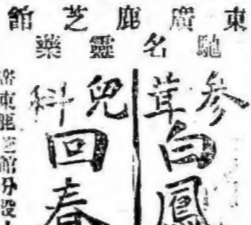 東廣鹿芝館
馳名靈藥
參茸
白鳳
兒科
回春
廣東鹿芝館分設